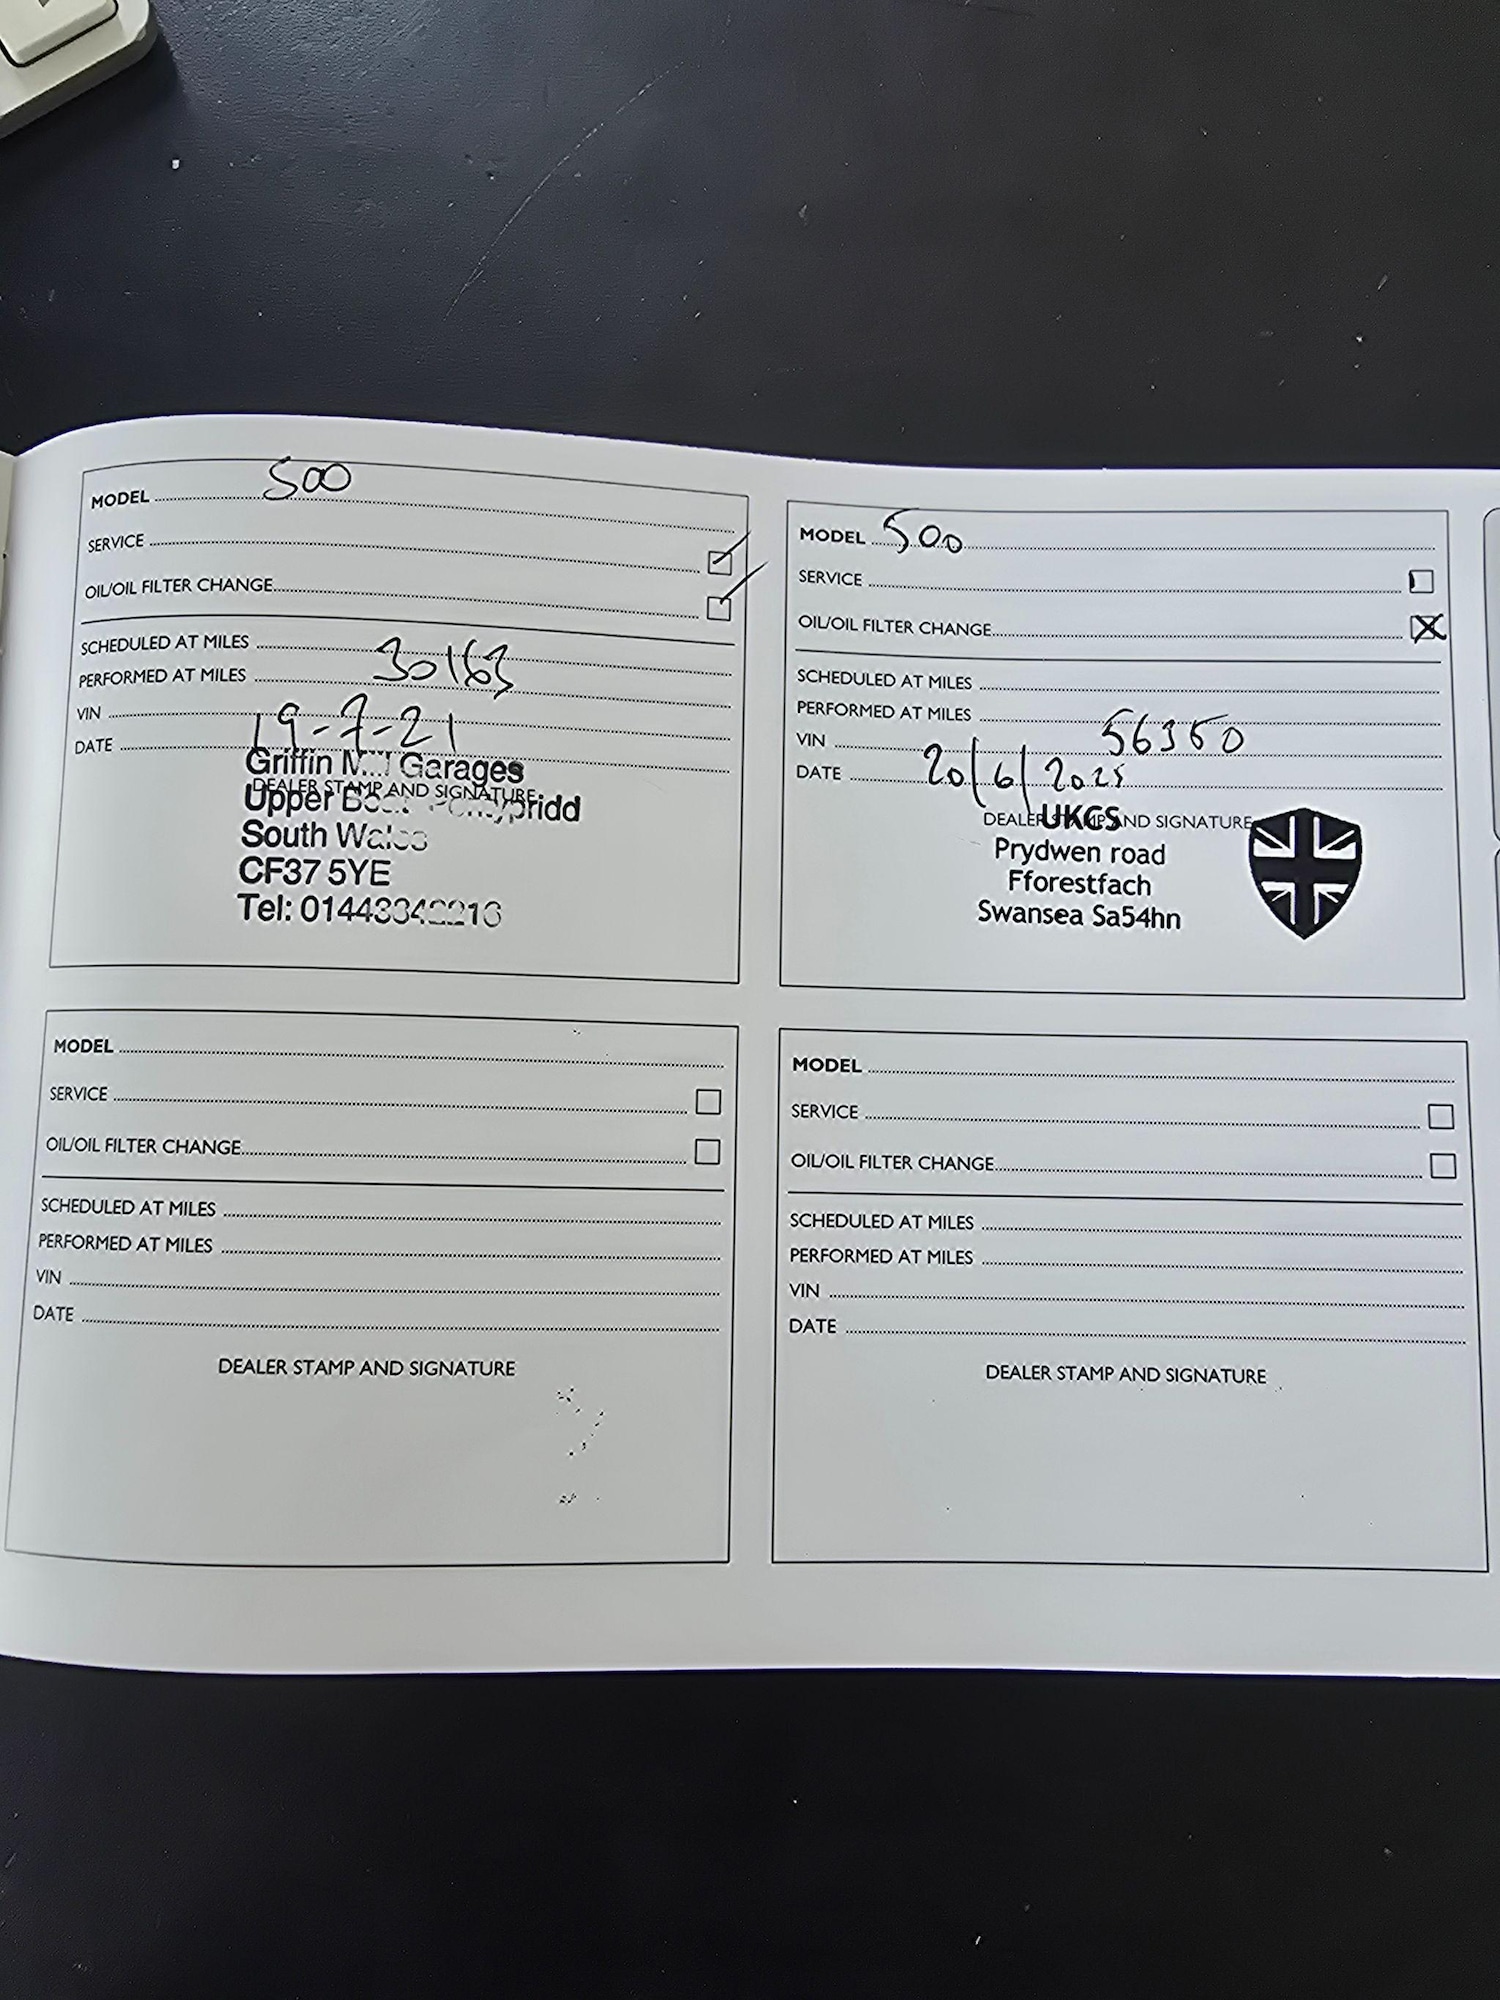 MODEL 500
SERVICE
OIL/OIL FILTER CHANGE
SCHEDULED AT MILES
PERFORMED AT MILES 30163
VIN
DATE 19-7-21
Griffin Garages
DEALER STAMP AND SIGNATURE
Upper
South Wales
CF37 5YE
Tel:
MODEL 500
SERVICE
OIL/OIL FILTER CHANGE
SCHEDULED AT MILES
PERFORMED AT MILES
VIN 56350
DATE 20/6/2025
DEALER STAMP AND SIGNATURE
UKCS
Prydwen road
Fforestfach
Swansea Sa54hn
MODEL
SERVICE
OIL/OIL FILTER CHANGE
SCHEDULED AT MILES
PERFORMED AT MILES
VIN
DATE
DEALER STAMP AND SIGNATURE
MODEL
SERVICE
OIL/OIL FILTER CHANGE
SCHEDULED AT MILES
PERFORMED AT MILES
VIN
DATE
DEALER STAMP AND SIGNATURE